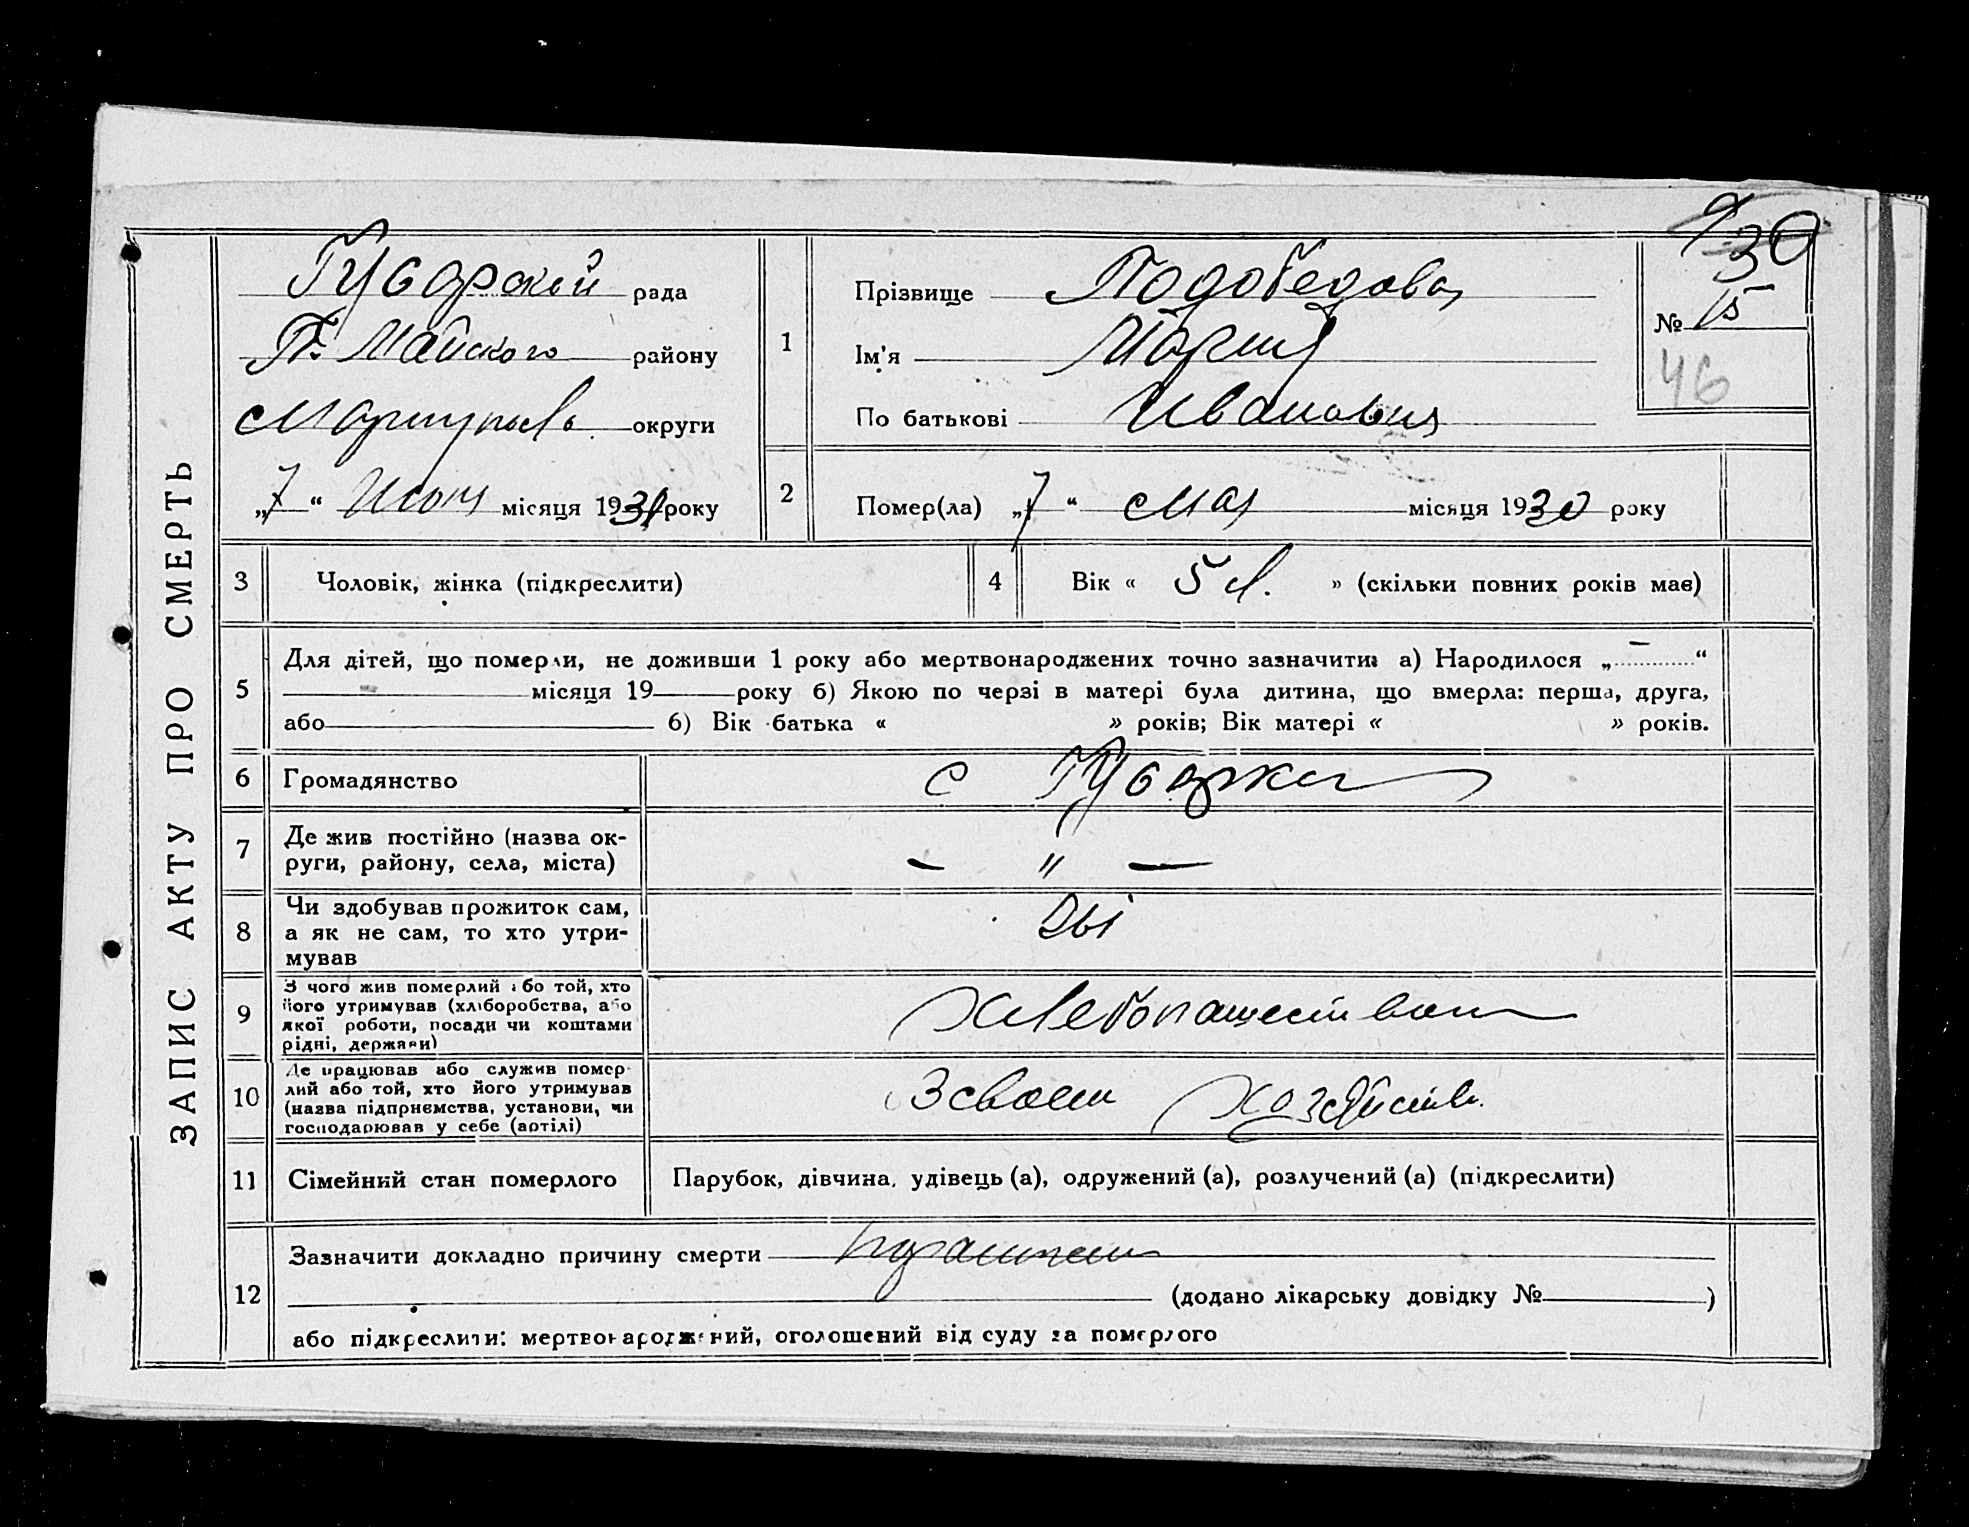 ЗАПИС АКТУ ПРО СМЕРТЬ
Гусарской рада
П. Майского району
Мариупольс округи
„7“ Июня місяця 1931 року
1
Прізвище Подобедова
Ім'я Мария
По батькові Ивановия
30
№ 15
46
2
Помер(ла) „7“ мая місяця 1930 року
3 Чоловік, жінка (підкреслити)
4 Вік « 5 л. » (скільки повних років має)
5
Для дітей, що померли, не доживши 1 року або мертвонароджених точно зазначити: а) Народилося „—“
місяця 19 року б) Якою по черзі в матері була дитина, що вмерла: перша, друга,
або б) Вік батька « » років; Вік матері « » років.
6 Громадянство с Гусарка
7 Де жив постійно (назва ок-
руги, району, села, міста)
— " —
8 Чи здобував прожиток сам,
а як не сам, то хто утри-
мував
9 З чого жив померлий або той, хто
його утримував (хліборобства, або
якої роботи, посади чи коштами
рідні, держави)
Хлебопашеством
10 Де працював або служив помер-
лий або той, хто його утримував
(назва підприємства, установи, чи
господарював у себе (артілі)
В своем хозяйстве
11 Сімейний стан померлого Парубок, дівчина, удівець (а), одружений (а), розлучений (а) (підкреслити)
12
Зазначити докладно причину смерти
(додано лікарську довідку № )
або підкреслити: мертвонароджений, оголошений від суду за померлого